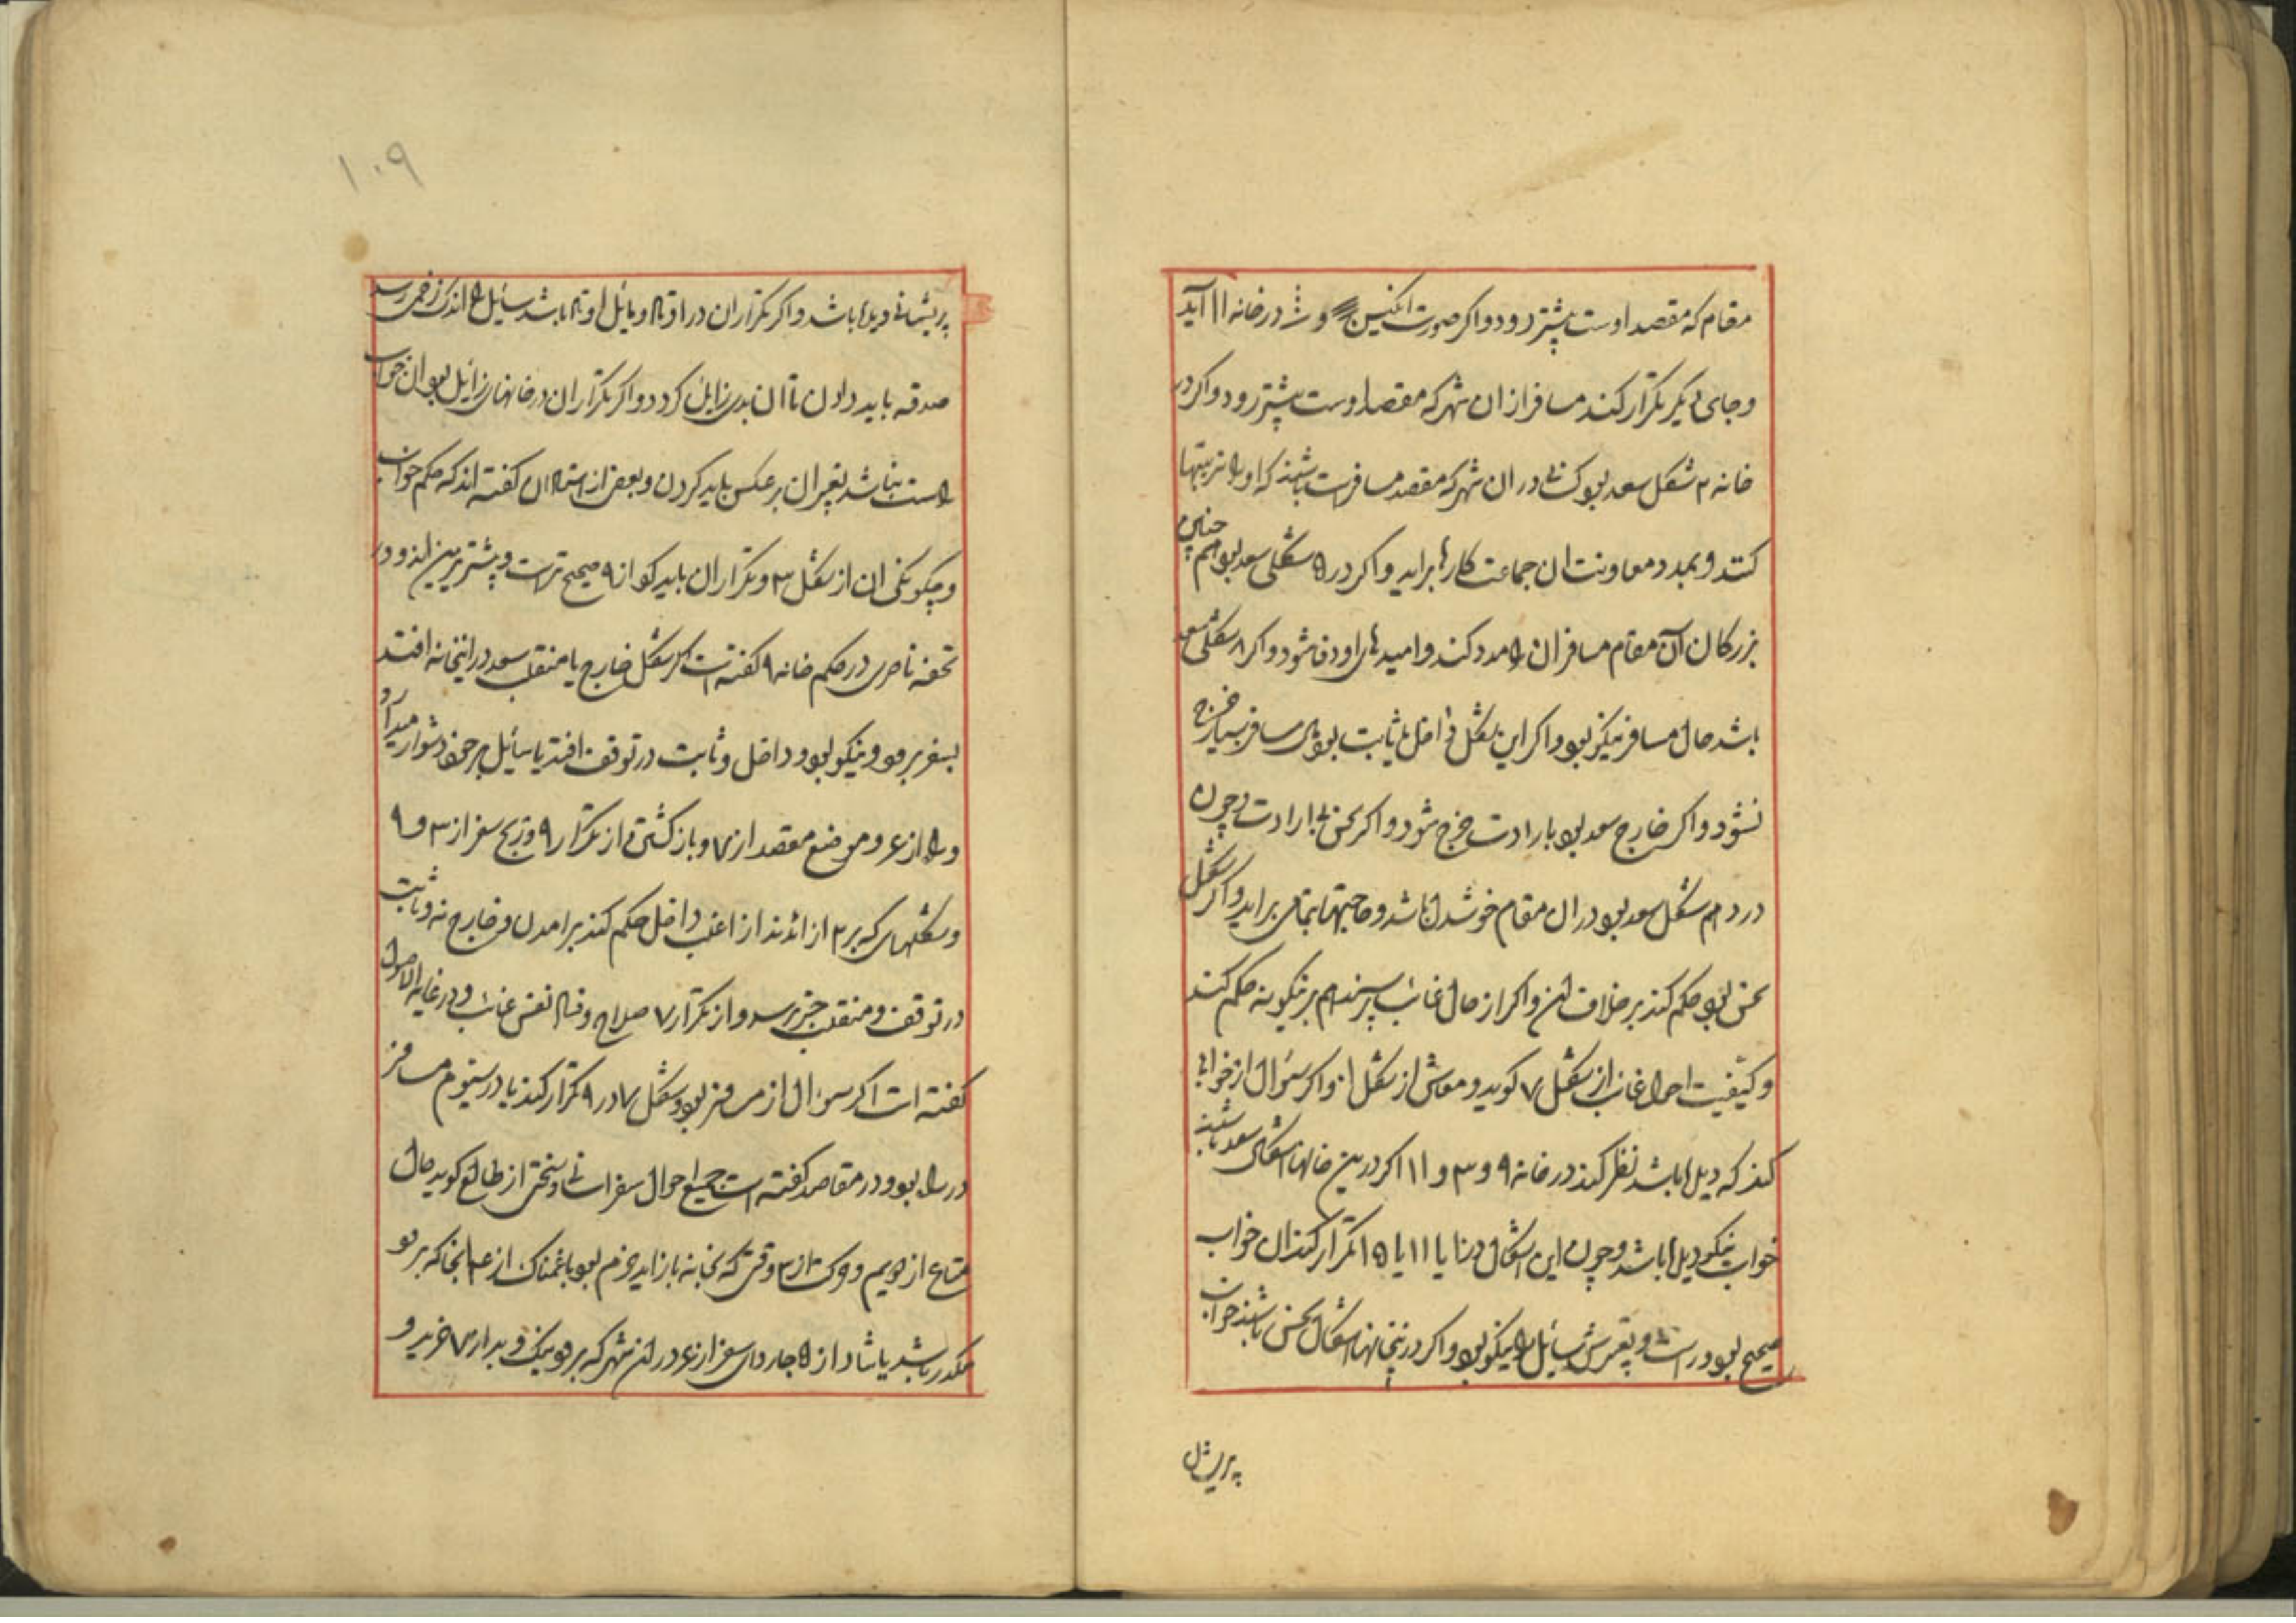 مقام که مقصد اوست پیشتر رود و اکر صورت انکیس و در خانه ۱۱ آید
و جای دیکر تکرار کند مسافر ازان شهر که مقصد اوست پیشتر رود و اکر در
خانه ۲ شکل سعد بود کسانی دران شهر که مقصد مسافرست باشند که او را تربیتها
کنند و بمدد معاونت ان جماعت کارها براید و اکر در ۵ شکلی سعد بود هم چنین
بزرکان آن مقام مسافران را مدد کنند و امیدهای او وفا شود و اکر ۸ شکلی سعد
باشد حال مسافر نیکو بود و اکر این شکل داخل یا ثابت بود مسافر بسیار خرج
نشود و اکر خارج سعد بود بارادت خرج شود و اکر نحس بی ارادت و چون
در دهم شکل سعد بود دران مقام خوشدل باشد و حاجتها تمامی براید و اکر شکل
نحس بود حکم کند بر خلاف این و اکر از حال غائب پرسند هم برینکونه حکم کند
و کیفیت احوال غائب از شکل ۷ کوید و معاش از شکل و اکر سؤال از خوابی
کند که دیده باشد نظر کند در خانه ۹ و ۳ و ۱۱ اکر درین خانها اشکال سعد باشند
خواب نیکو دیده باشد و چون این اشکال در یا ۱۱ یا ۱۵ تکرار کند ان خواب
صحیح بود و راست و تعبیرش سائل را نیکو بود و اکر درینخانها اشکال نحس باشند خواب
پریشان
۱۰۹
پریشانی دیده باشد و اکر تکرار ان در اوتاد و مایل اوتاد باشد سایل را اندک زخمی رسد
صدقه باید دادن تا ان بدی زایل کردد و اکر تکرار ان در خانهای زایل بود ان خواب
راست نباشد تعبیر ان بر عکس باید کردن و بعضی از استادان کفته اند که حکم خواب
و چکونکی ان از شکل ۳ و تکرار ان باید کو از ۹ صحیح ترست و پیشتر برین اند و در
تحفه ناصری در حکم خانه ۹ کفته است اکر شکل خارج یا منقلب سعد در اینخانه افتد
بسفر برود و نیکو بود و داخل و ثابت در توقف افتد یا سائل مراجعت دشوار
و راه از ۶ و موضع مقصد از ۷ و باز کشتن از تکرار ۹ و رنج سفر از ۳ و ۹
و شکلهای که بر ۳ از اغلب داخل حکم کند بر امدن و خارج نه و ثابت
در توقف و منقلب خبر رسد و از تکرار ۷ صلاح و فساد نفس غائب و در غایة الاصول
کفته است اکر سوال از مسافر بود و شکل ۷ در ۹ تکرار کند یا در سیوم مسافر
در راه بود و در مقاصد کفته است جمیع احوال سفر آسانی و سختی از طالع کوید حال
متاع از دویم و از ۳ وقتی که بخانه باز آید خرم بود یا غمناک از ۴ انجا که برود
مکدر باشد یا شاد از ۵ چاروای سفر از ۶ در ان شهر که برود نیک و بد از ۷ خرید و